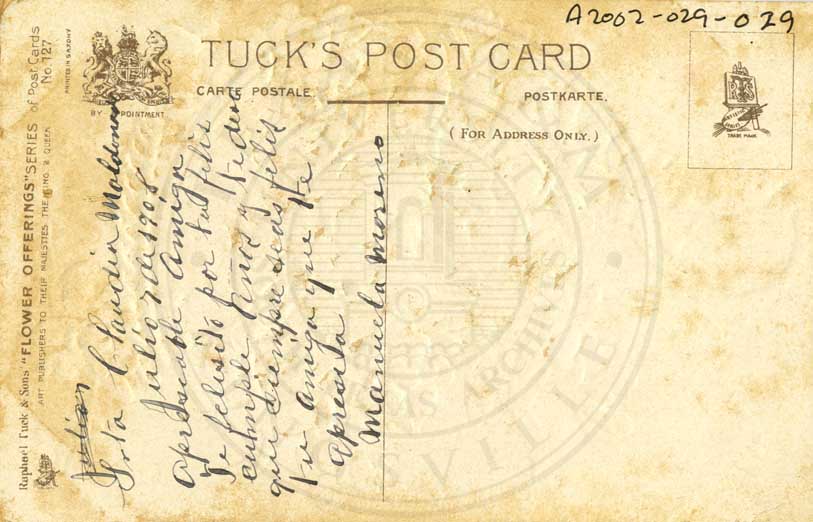 A2002-029-029
TUCK'S POST CARD
CARTE POSTALE.
POSTKARTE.
(FOR ADDRESS ONLY.)
BY APPOINTMENT
TRADE MARK
Raphael Tuck & Sons' "FLOWER OFFERINGS" SERIES of Post Cards No. 127
ART PUBLISHERS TO THEIR MAJESTIES THE KING & QUEEN
PRINTED IN SAXONY
Julio
Srta Claudia Maldonado
Julio 7 de 1908
Apreciable Amiga
Te felisito por tu felis
cumple años y deseo
que siempre seas felis
tu amiga que te
apresia
Manuela Moreno
ARCHIVES